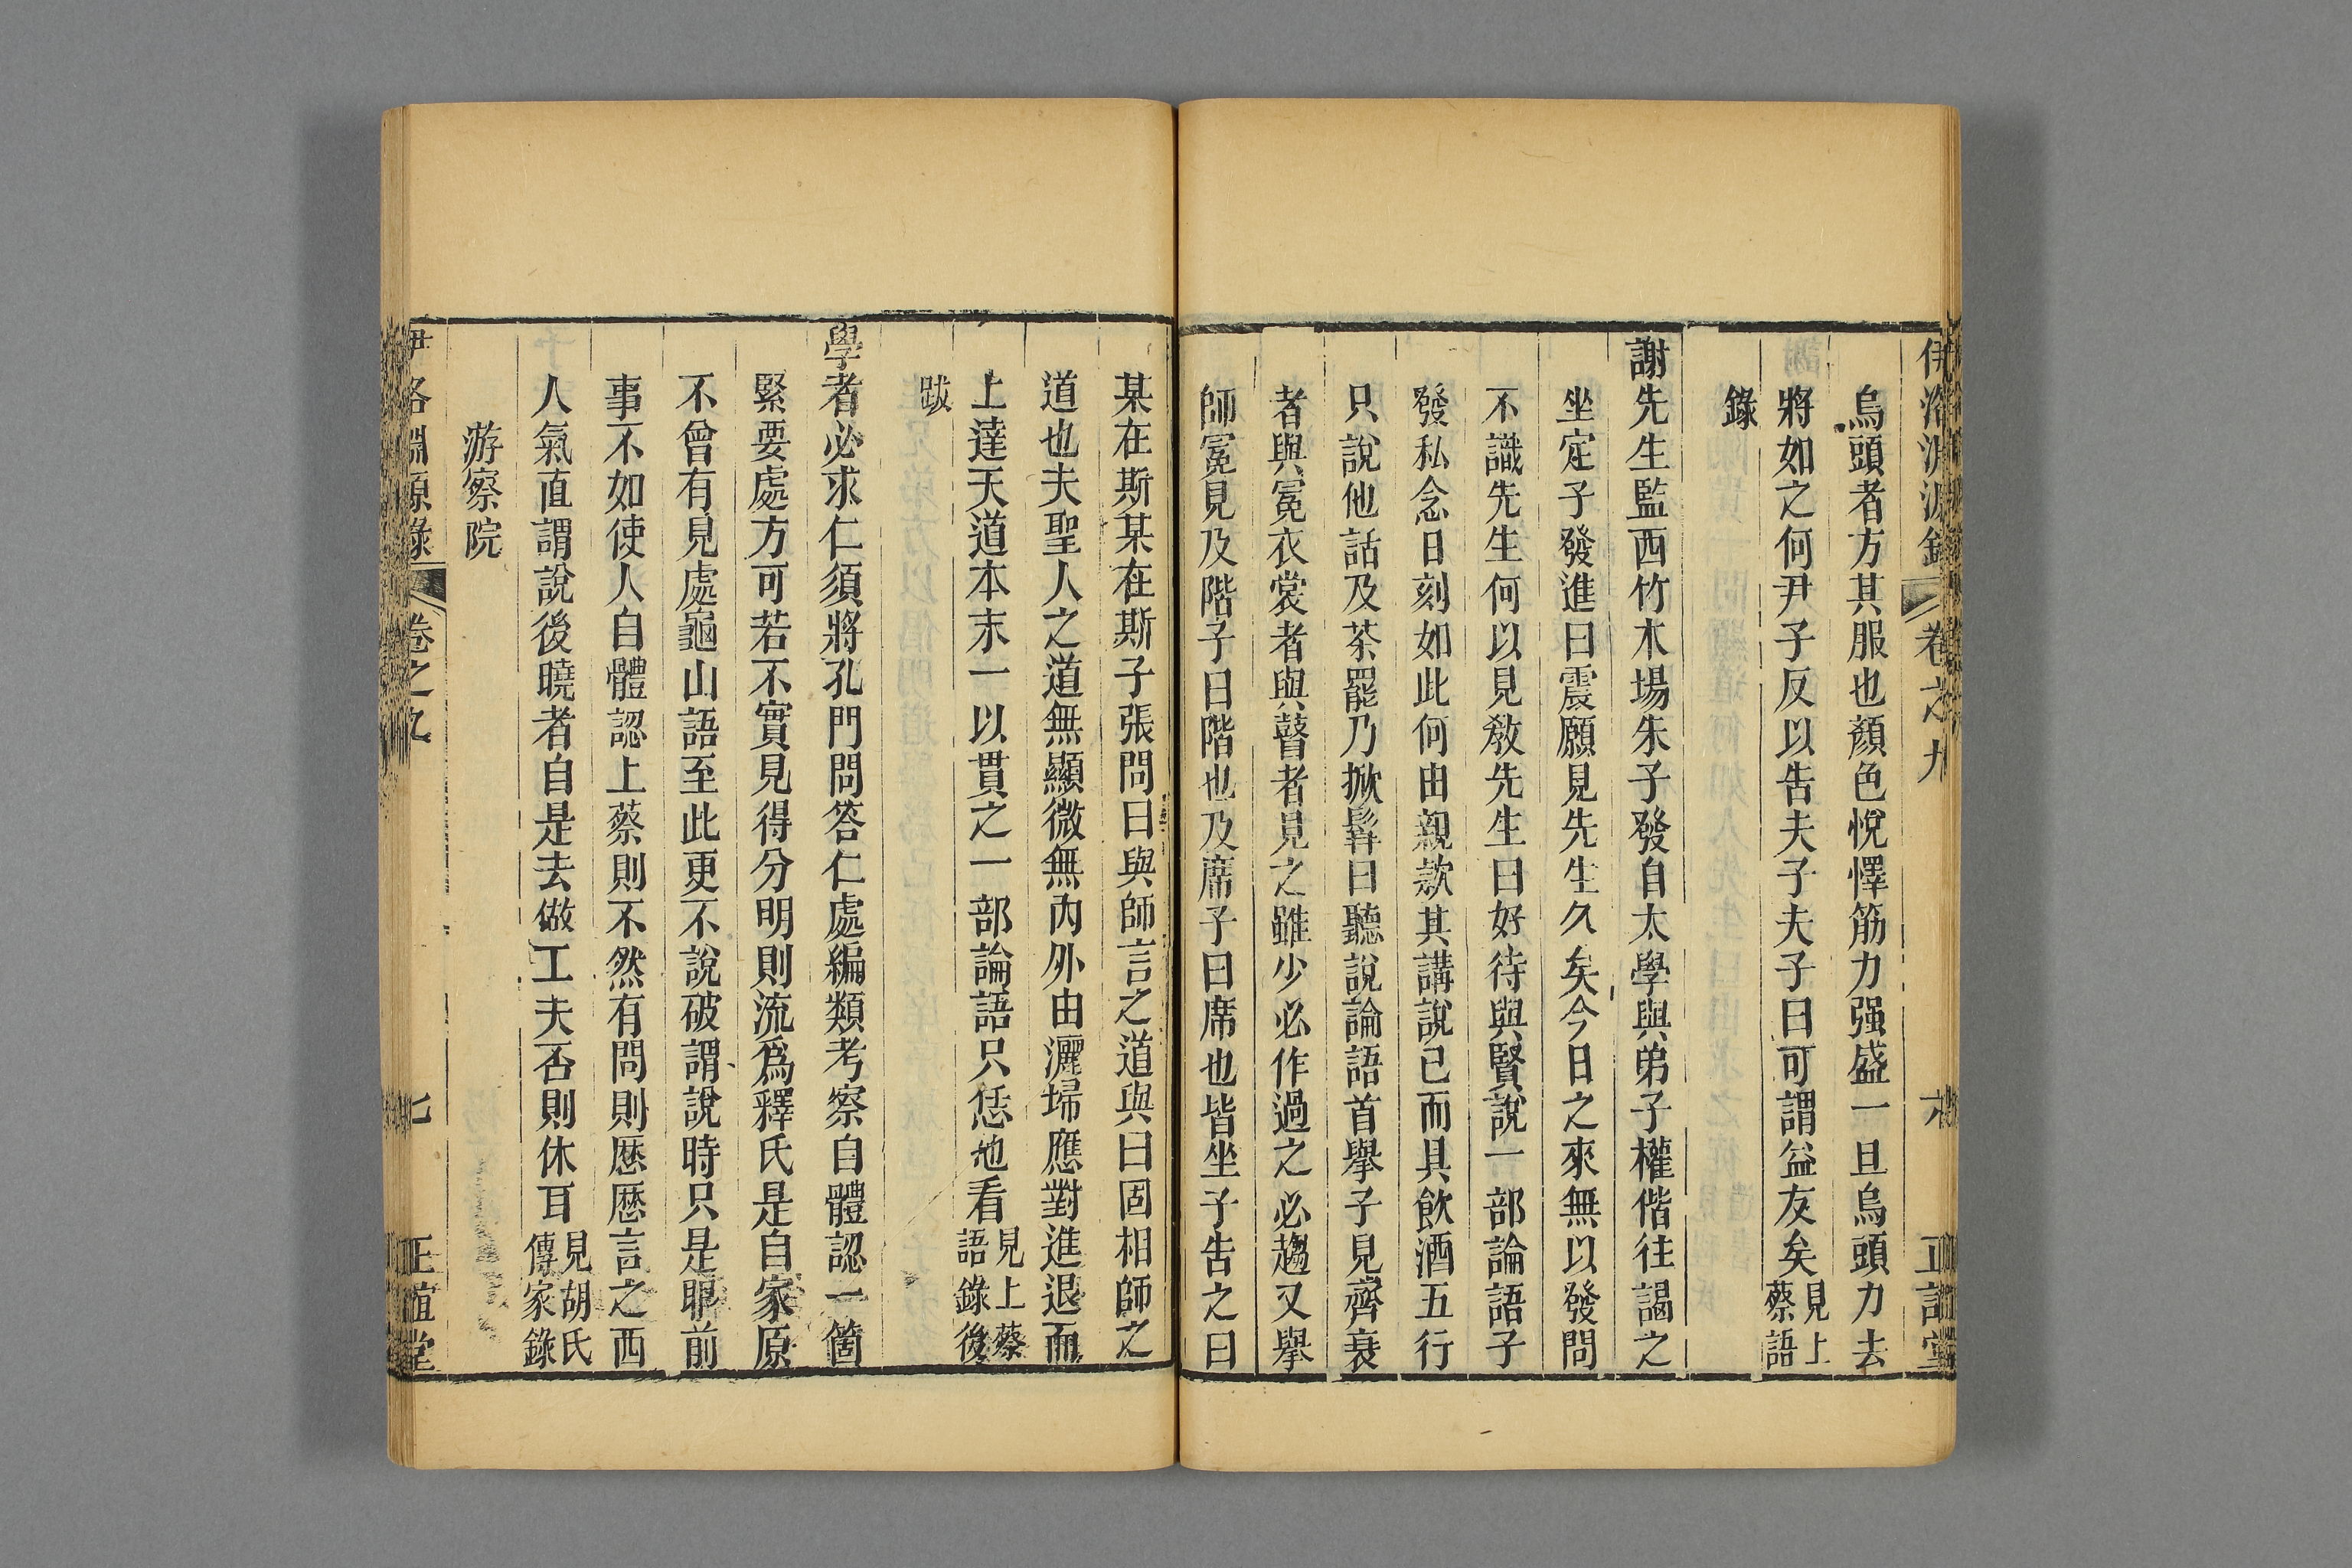 伊洛淵源錄 卷之九 六 正誼堂
烏頭者方其服也顏色悅懌筋力强盛一旦烏頭力去
將如之何尹子反以告夫子夫子曰可謂益友矣見上蔡語
錄
謝先生監西竹木場朱子發自太學與弟子權偕往謁之
坐定子發進曰震願見先生久矣今日之來無以發問
不識先生何以見敎先生曰好待與賢說一部論語子
發私念日刻如此何由親欵其講說已而具飲酒五行
只說他話及茶罷乃掀髯曰聽說論語首舉子見齊衰
者與冕衣裳者與瞽者見之雖少必作過之必趨又舉
師冕見及階子曰階也及席子曰席也皆坐子告之曰
某在斯某在斯子張問曰與師言之道與曰固相師之
道也夫聖人之道無顯微無內外由灑埽應對進退而
上達天道本末一以貫之一部論語只恁地看見上蔡語錄後
跋
學者必求仁須將孔門問答仁處編類考察自體認一箇
緊要處方可若不實見得分明則流爲釋氏是自家原
不曾有見處龜山語至此更不說破謂說時只是眼前
事不如使人自體認上蔡則不然有問則歷歷言之西
人氣直謂說後曉者自是去做工夫否則休耳見胡氏傳家錄
游察院
伊洛淵源錄 卷之九 七 正誼堂